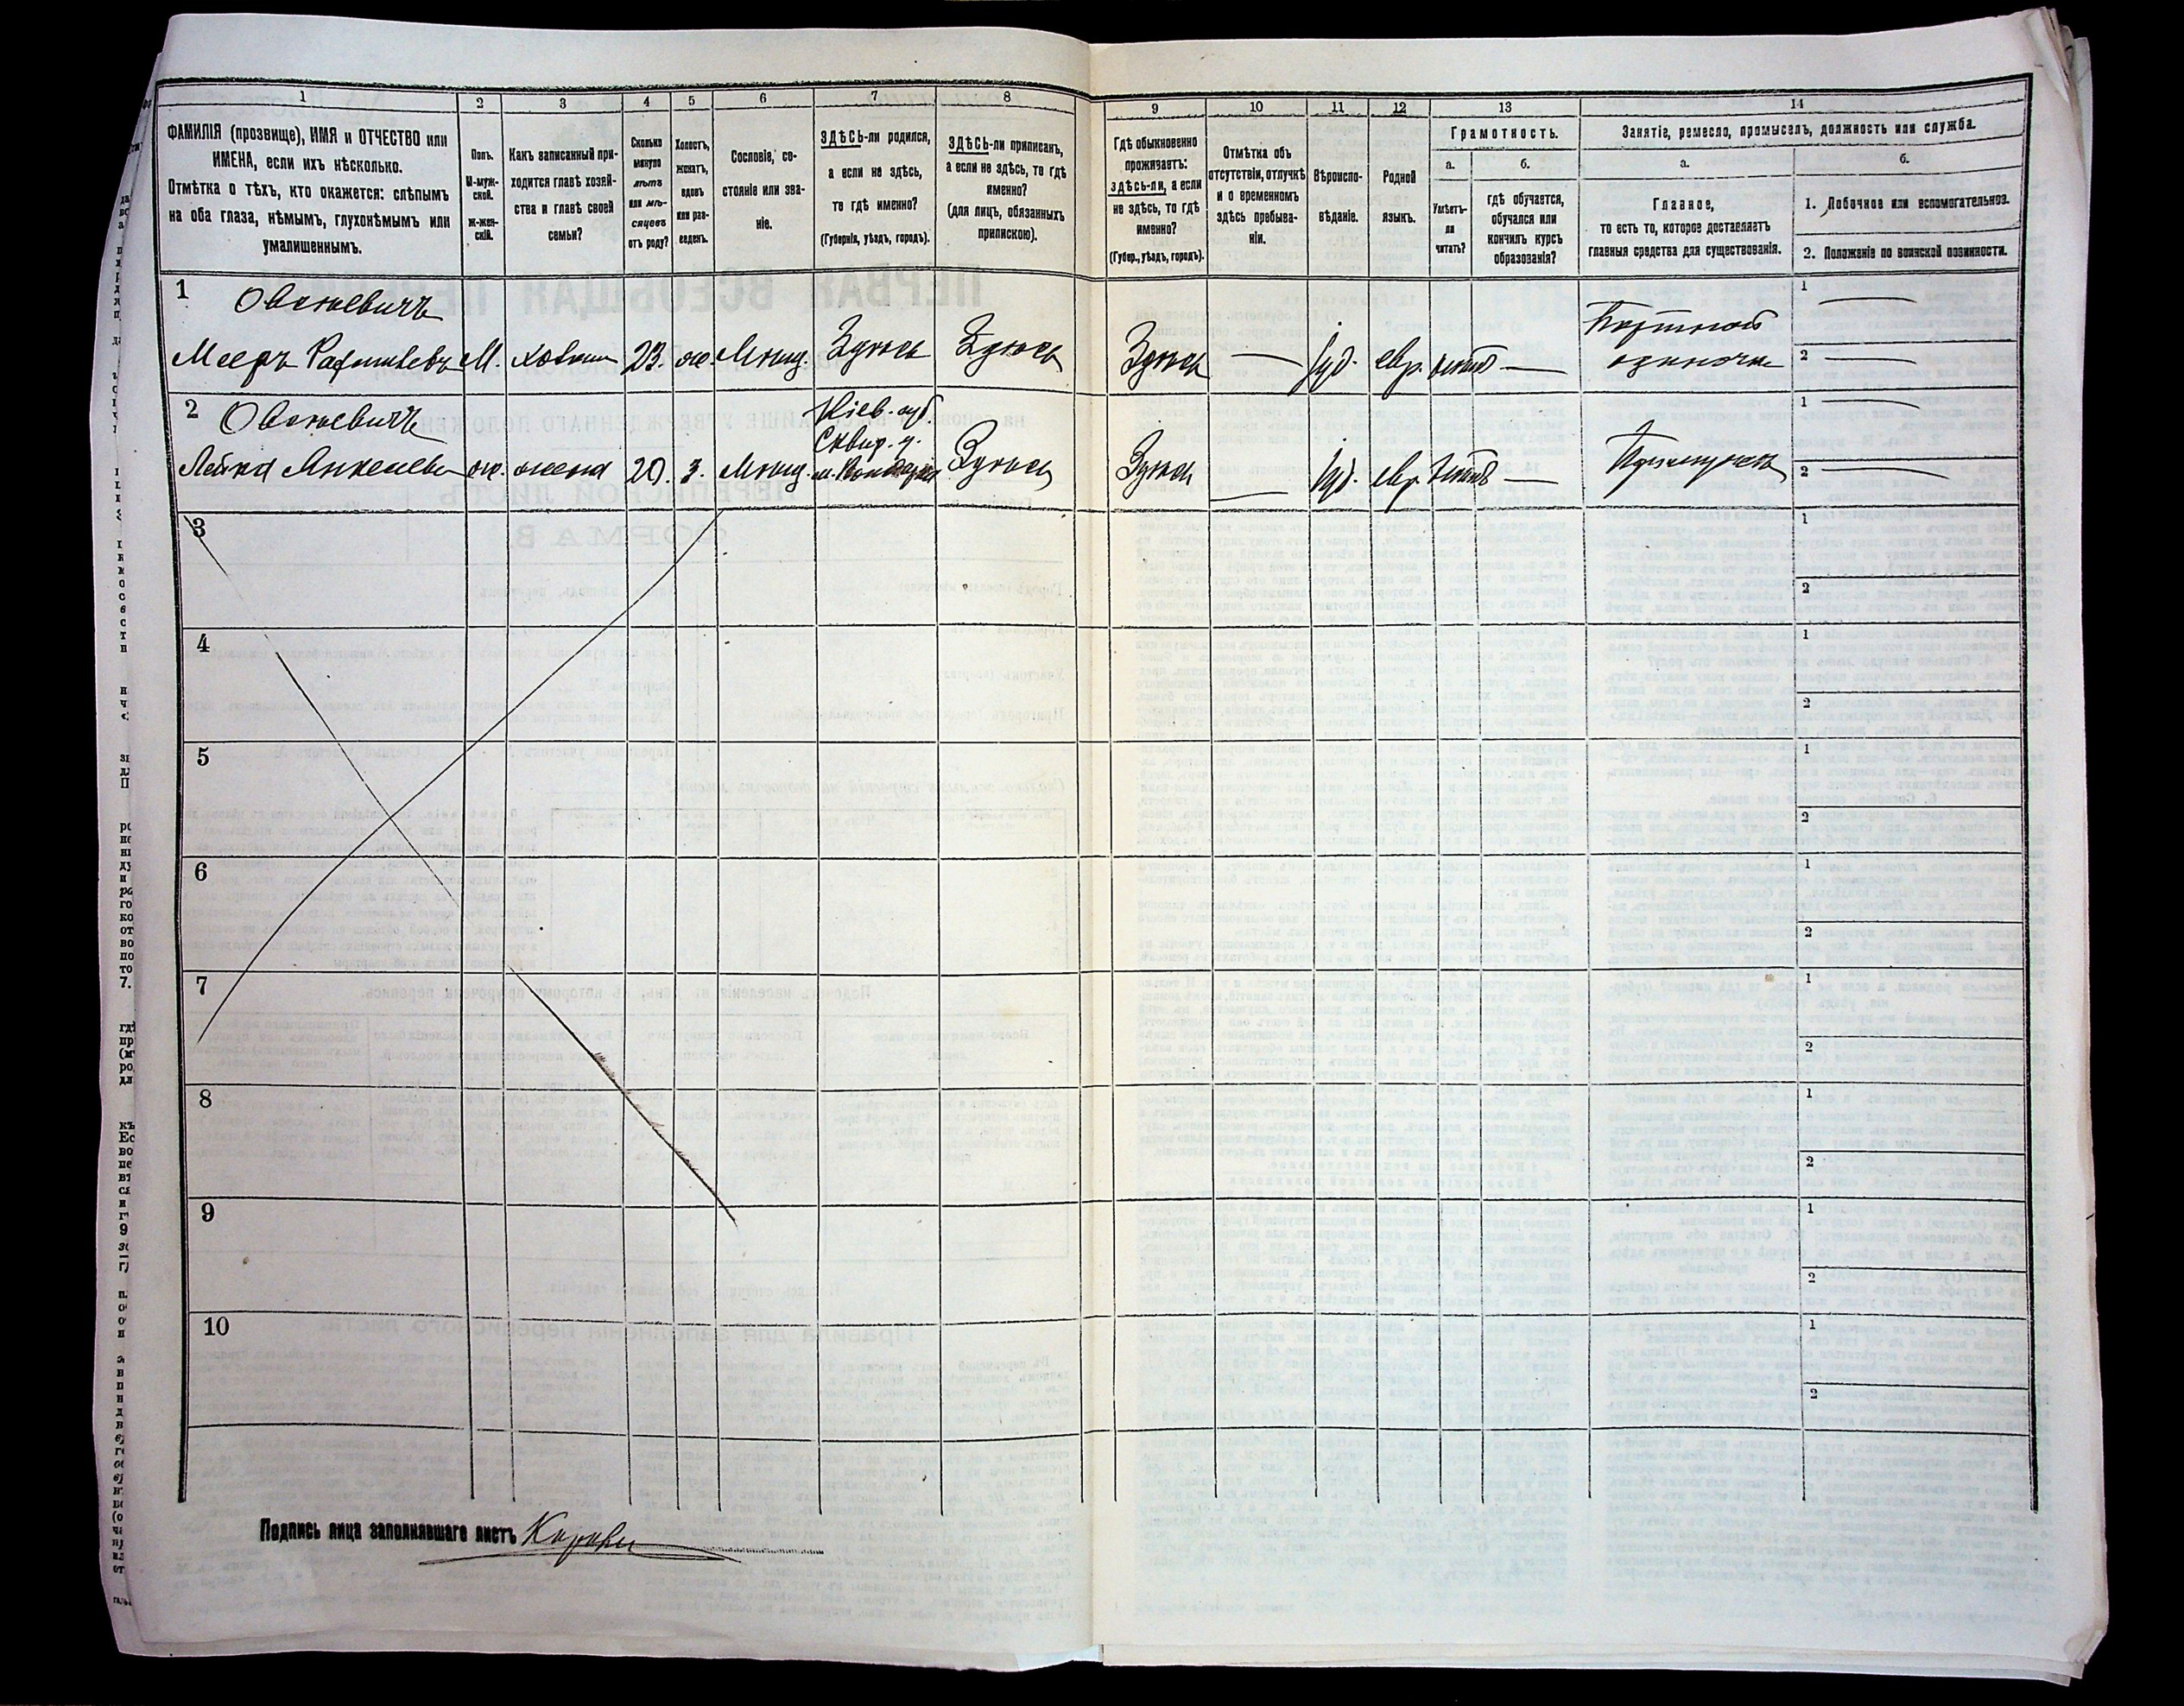 1 2 3 4 5 6 7 8 9 10 11 12 13 14
ФАМИЛІЯ (прозвище), ИМЯ и ОТЧЕСТВО или
ИМЕНА, если ихъ нѣсколько.
Отмѣтка о тѣхъ, кто окажется: слѣпымъ
на оба глаза, нѣмымъ, глухонѣмымъ или
умалишеннымъ.
Полъ.
М-муж-
ской.
Ж-жен-
скій.
Какъ записанный при-
ходится главѣ хозяй-
ства и главѣ своей
семьи?
Сколько
минуло
лѣтъ
или мѣ-
сяцевъ
отъ роду?
Холостъ,
женатъ,
вдовъ
или раз-
веденъ.
Сословіе, со-
стояніе или зва-
ніе.
ЗДѢСЬ-ли родился,
а если не здѣсь,
то гдѣ именно?
(Губернія, уѣздъ, городъ).
ЗДѢСЬ-ли приписанъ,
а если не здѣсь, то гдѣ
именно?
(для лицъ, обязанныхъ
припискою).
Гдѣ обыкновенно
проживаетъ:
здѣсь-ли, а если
не здѣсь, то гдѣ
именно?
(Губер., уѣздъ, городъ).
Отмѣтка объ
отсутствіи, отлучкѣ
и о временномъ
здѣсь пребыва-
ніи.
Вѣроиспо-
вѣданіе.
Родной
языкъ.
Грамотность.
а.
Умѣетъ-
ли
читать?
б.
гдѣ обучается,
обучался или
кончилъ курсъ
образованія?
Занятіе, ремесло, промыселъ, должность или служба.
а.
Главное,
то есть то, которое доставляетъ
главныя средства для существованія.
б.
1. Побочное или вспомогательное.
2. Положеніе по воинской повинности.
1
Овсіевичъ
М. хозяинъ 23. ж. Мѣщ. Здѣсь Здѣсь Здѣсь — Іуд. евр. —
Портной
одиночка
1 —
2 —
2
Овсіевичъ
Лейка Янкелева ж. жена 20. з. Мѣщ.
Кіев. губ.
Сквир. у.
Здѣсь Здѣсь — Іуд. евр. —
1 —
2 —
3
1
2
4
1
2
5
1
2
6
1
2
7
1
2
8
1
2
9
1
2
10
1
2
Подпись лица заполнявшаго листъ